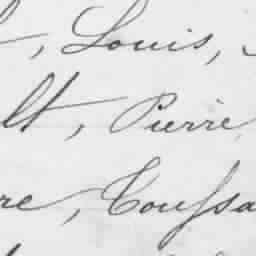 t, Louis,
lt, Pierre
re, Toussa